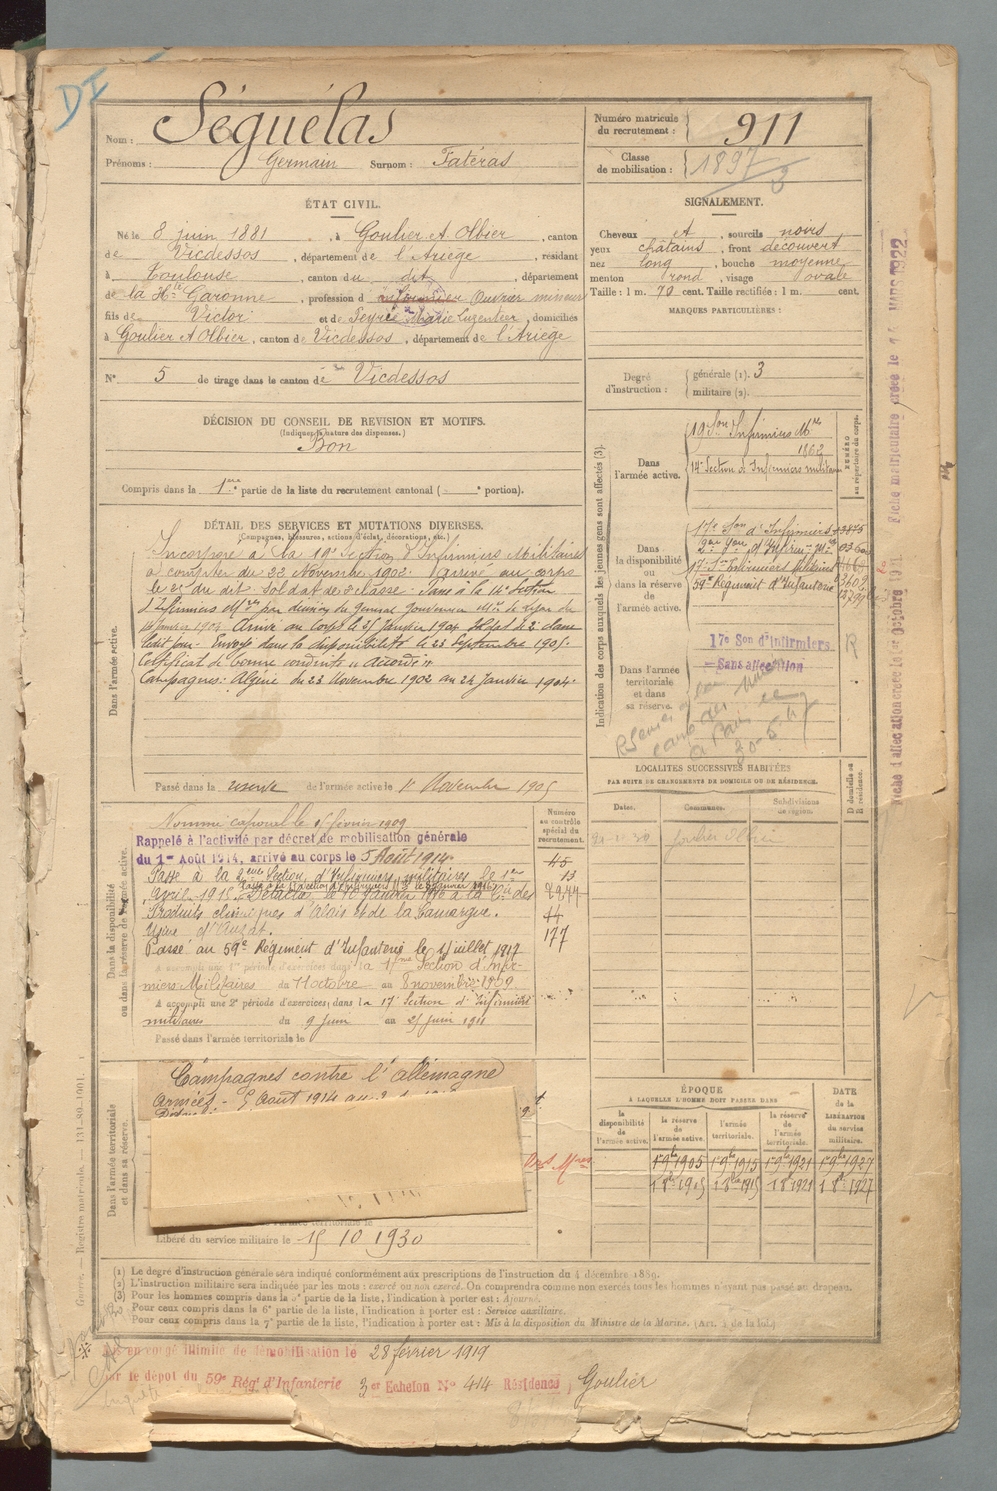 DI
Nom : Séguélas
Prénoms : Germain Surnom : Fatéras
Numéro matricule du recrutement : 911
Classe de mobilisation : 1897
3
ÉTAT CIVIL.
Né le 8 juin 1881, à Goulier et Olbier, canton
de Vicdessos, département de l'Ariège, résidant
à Toulouse, canton du dit, département
de la Hte Garonne, profession d infirmier Ouvrier mineur
fils de Victor et de Peyre Marie Luzenteer, domiciliés
à Goulier et Olbier, canton de Vicdessos, département de l'Ariège
N° 5 de tirage dans le canton de Vicdessos
SIGNALEMENT.
Cheveux et, sourcils noirs
yeux châtains, front découvert
nez long, bouche moyenne
menton rond, visage ovale
Taille : 1 m. 70 cent. Taille rectifiée : 1 m. cent.
MARQUES PARTICULIÈRES :
Degré d'instruction : générale (1). 3
militaire (2).
DÉCISION DU CONSEIL DE REVISION ET MOTIFS.
(Indiquer la nature des dispenses.)
Bon
Compris dans la 1ère partie de la liste du recrutement cantonal ( - portion).
DÉTAIL DES SERVICES ET MUTATIONS DIVERSES.
(Campagnes, blessures, actions d'éclat, décorations, etc.)
Dans l'armée active.
Incorporé à la 19e Section d'Infirmiers Militaires
à compter du 22 Novembre 1902. Arrivé au corps
le 23 du dit. Soldat de 2e classe. Passé à la 14e Section
d'Infirmiers Mres par décision du Général Gouverneur Mre de Lyon du
14 Janvier 1904. Arrivé au Corps le 25 Janvier 1904. Soldat de 2e classe
ledit jour. Envoyé dans la disponibilité le 23 Septembre 1905.
Certificat de bonne conduite "accordé"
Campagnes : Algérie du 23 Novembre 1902 au 24 Janvier 1904
Passé dans la réserve de l'armée active le 1r Novembre 1905
Indication des corps auxquels les jeunes gens sont affectés (3).
NUMÉRO au répertoire du corps.
Dans l'armée active.
19 Son Infirmiers Mres
1862
14e Section d'Infirmiers militaires
Dans la disponibilité ou dans la réserve de l'armée active.
17e Son d'Infirmiers
17e Son Infirmiers Militaires
59e Régiment d'Infanterie
Dans l'armée territoriale et dans sa réserve.
17e Son d'Infirmiers
Sans affectation
R
Fiche matriculaire créée le MARS 1922
Fiche d'affectation créée le 1er Octobre 1931
LOCALITÉS SUCCESSIVES HABITÉES
PAR SUITE DE CHANGEMENTS DE DOMICILE OU DE RÉSIDENCE.
Dates. Communes. Subdivisions de région. D domicile ou R résidence.
Goulier Olbier
Dans la disponibilité ou dans la réserve de l'armée active.
Numéro au contrôle spécial du recrutement.
Nommé caporal le 15 février 1909
Rappelé à l'activité par décret de mobilisation générale
du 1er Août 1914, arrivé au corps le 5 Août 1914
Passé à la 2ème Section d'Infirmiers militaires le 1er
Avril 1915. Détaché le 10 Janvier 1916 à la Cie des
Produits chimiques d'Alais et de la Camargue.
Usine d'Auzat.
Passé au 59e Régiment d'Infanterie le 1r juillet 1917
A accompli une 1re période d'exercices dans la 17ème Section d'Infir-
miers Militaires du 11 octobre au 8 novembre 1909
A accompli une 2e période d'exercices, dans la 17e Section d'Infirmiers
militaires du 9 juin au 25 juin 1911
Passé dans l'armée territoriale le
45
13
2977
44
177
Dans l'armée territoriale et dans sa réserve.
Campagnes contre l'Allemagne
Armées - 5 Août 1914 au
Libéré du service militaire le 15 10 1930
ÉPOQUE
À LAQUELLE L'HOMME DOIT PASSER DANS
la disponibilité de l'armée active. la réserve de l'armée active. l'armée territoriale. la réserve de l'armée territoriale.
DATE de la LIBÉRATION du service militaire.
1 9bre 1905 1 9bre 1915 1 9bre 1921 1 9bre 1927
1 8bre 1905 1 8bre 1915 1 8 1921 1 8bre 1927
(1) Le degré d'instruction générale sera indiqué conformément aux prescriptions de l'instruction du 4 décembre 1889.
(2) L'instruction militaire sera indiquée par les mots : exercé ou non exercé. On comprendra comme non exercés tous les hommes n'ayant pas passé au drapeau.
(3) Pour les hommes compris dans la 5e partie de la liste, l'indication à porter est : Ajourné.
Pour ceux compris dans la 6e partie de la liste, l'indication à porter est : Service auxiliaire.
Pour ceux compris dans la 7e partie de la liste, l'indication à porter est : Mis à la disposition du Ministre de la Marine. (Art. 4 de la loi.)
en congé illimité de démobilisation le 28 février 1919
le dépôt du 59e Régt d'Infanterie 3er Echelon N° 414 Résidence Goulier
Guerres. — Registre matricule. — 131-89-1901.